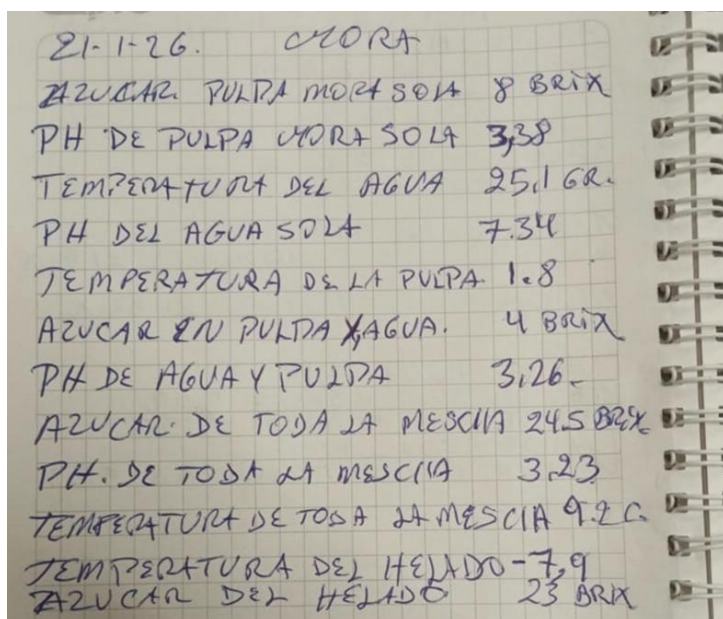 21-1-26. MORA
AZUCAR PULPA MORA SOLA 8 BRIX
PH DE PULPA MORA SOLA 3,38
TEMPERATURA DEL AGUA 25,1 GR.
PH DEL AGUA SOLA 7.34
TEMPERATURA DE LA PULPA. 1.8
AZUCAR EN PULPA Y AGUA. 4 BRIX
PH DE AGUA Y PULPA 3,26-
AZUCAR. DE TODA LA MESCLA 24.5 BRIX
PH. DE TODA LA MESCLA 3.23
TEMPERATURA DE TODA LA MESCLA 9.2 C.
TEMPERATURA DEL HELADO -7,9
AZUCAR DEL HELADO 23 BRIX